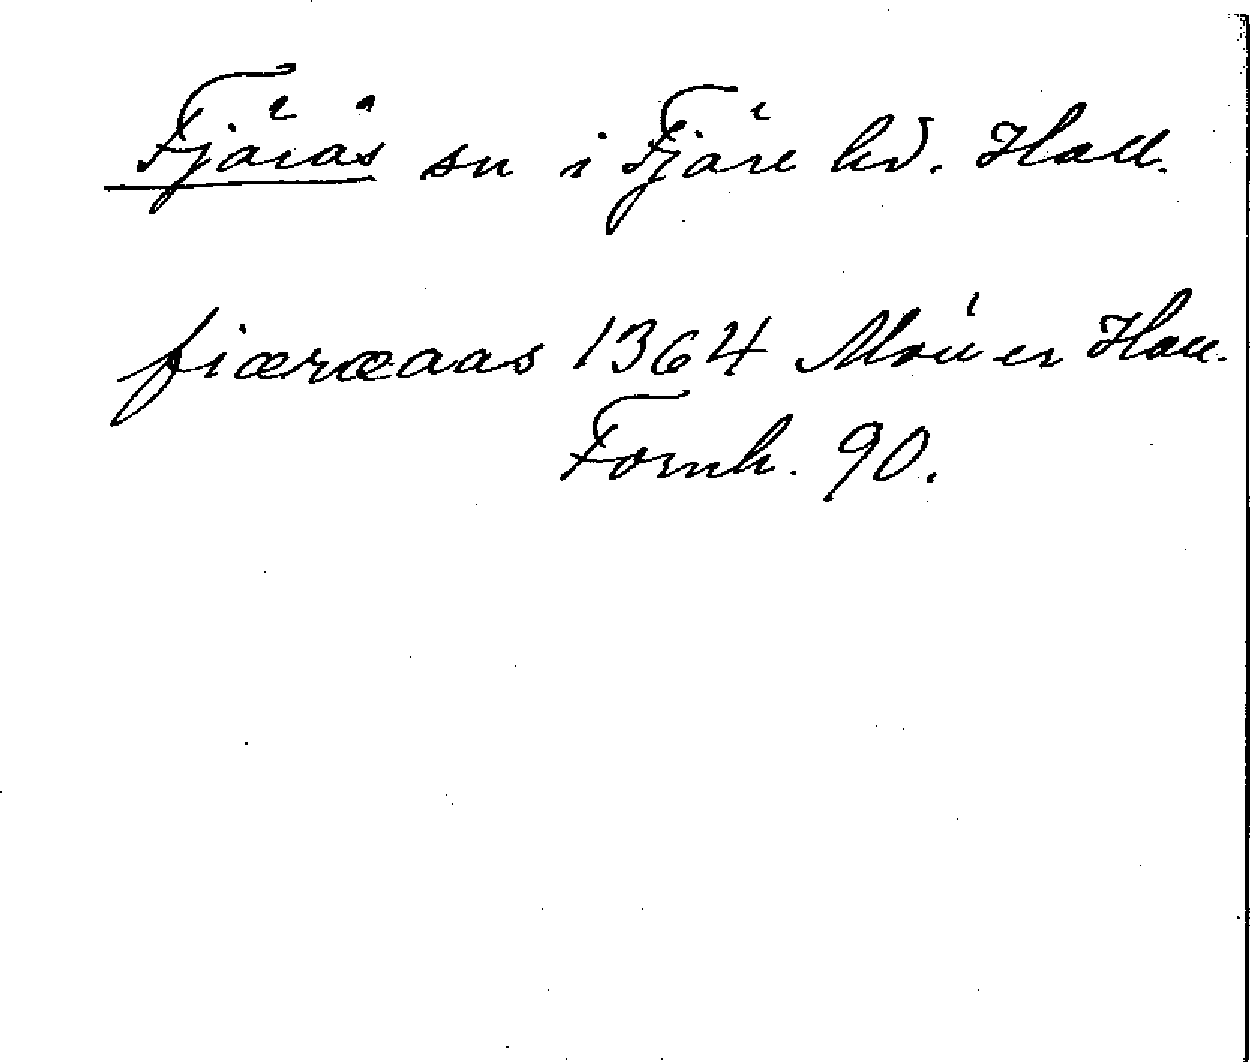 Fjärås sn i Fjäre hd. Hall.
fiæræaas 1364 Mouer Hall.
Fornh. 90.